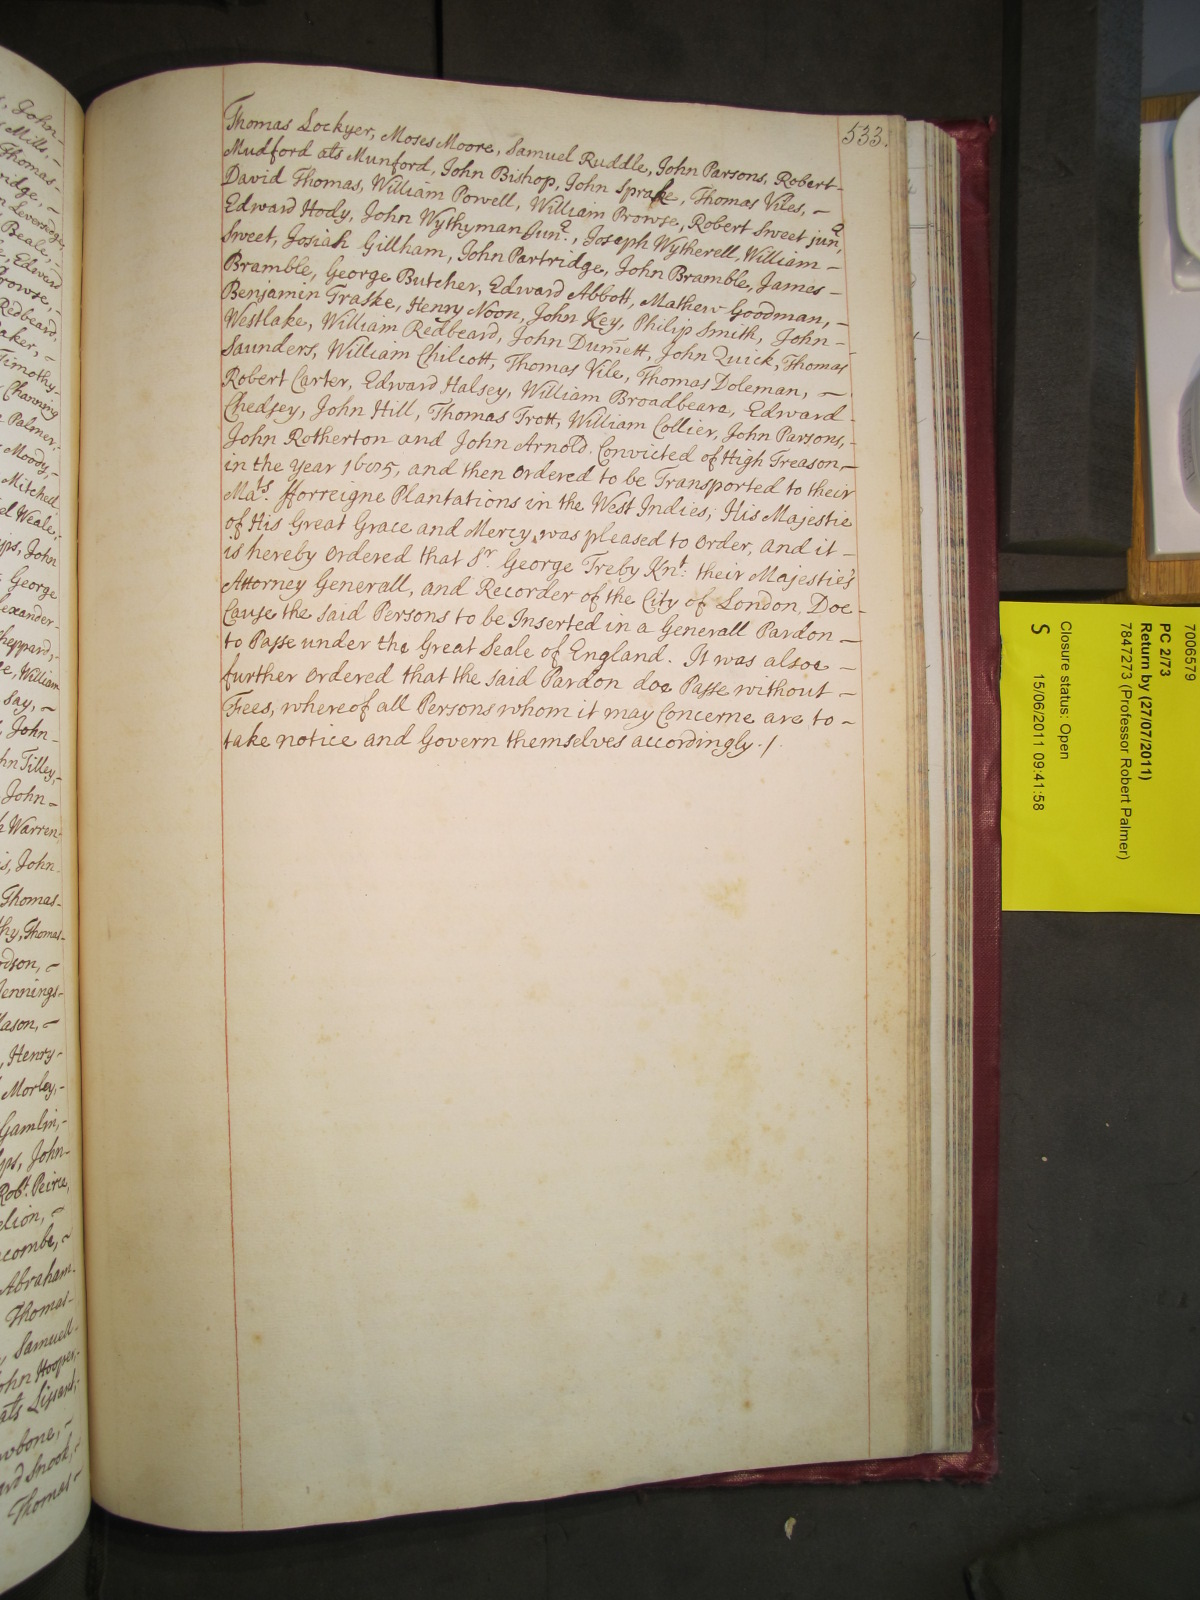 533.
Thomas Lockyer, Moses Moore, Samuel Ruddle, John Parsons, Robert-
Mudford als Munford, John Bishop, John Sprake, Thomas Viles, -
David Thomas, William Powell, William Prowse, Robert Sweet junr,
Edward Hody, John Wythyman Junr., Joseph Wytherell, William -
Sweet, Josiah Gillham, John Partridge, John Bramble, James -
Bramble, George Butcher, Edward Abbott, Mathew Goodman, -
Benjamin Traske, Henry Noon, John Key, Philip Smith, John -
Westlake, William Redbeard, John Dumett, John Quick, Thomas
Saunders, William Chilcott, Thomas Vile, Thomas Doleman, -
Robert Carter, Edward Halsey, William Broadbeara, Edward -
Chedsey, John Hill, Thomas Trott, William Collier, John Parsons, -
John Rotherton and John Arnold, Convicted of High Treason, -
in the Year 1685, and then ordered to be Transported to their
Mats. fforreigne Plantations in the West Indies; His Majestie
of His Great Grace and Mercy, was pleased to Order, and it -
is hereby Ordered that Sr. George Treby Knt: their Majestie's
Attorney Generall, and Recorder of the City of London, Doe -
Cause the said Persons to be Inserted in a Generall Pardon -
to Passe under the Great Seale of England. It was alsoe -
further Ordered that the said Pardon doe Passe without -
Fees, whereof all Persons whom it may Concerne are to -
take notice and Govern themselves accordingly. /.
7006579
PC 2/73
Return by (27/07/2011)
7847273 (Professor Robert Palmer)
Closure status: Open
S 15/06/2011 09:41:58